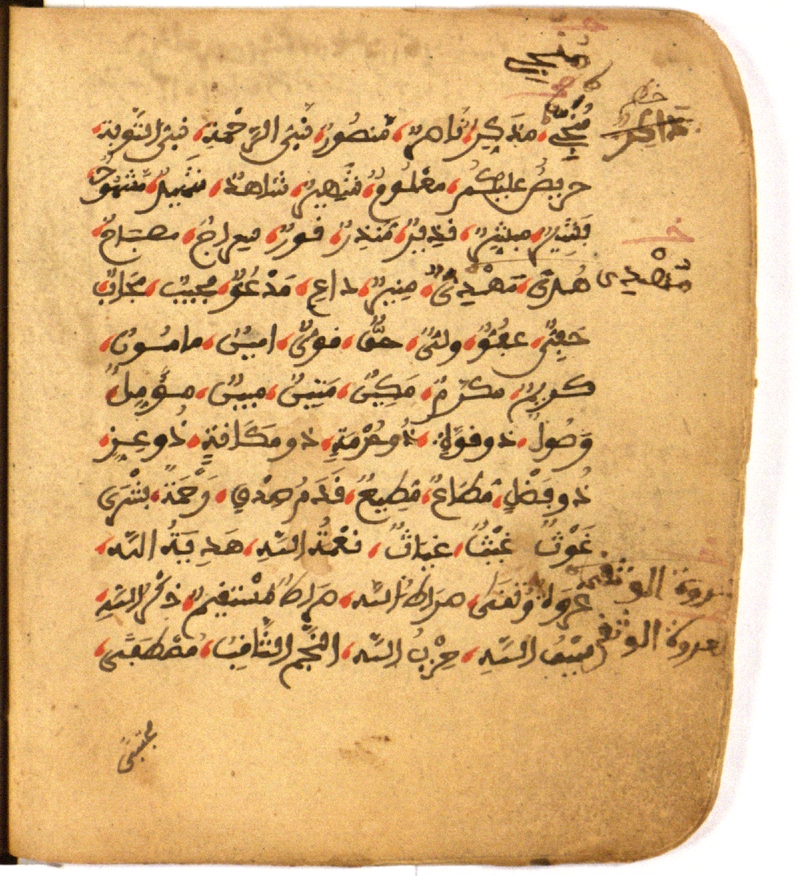 منجي
مُنْجٍ، مذكر، ناصر، منصور، نبي الرحمة، نبي التوبة،
حريص عليكم، معلوم، شهير، شاهد، شهيد، مشهود
بشير، مبشر، نذير، منذر، نور، سراج، مصباح
هدى، مهدي، منير، داع، مدعو، مجيب، مجاب
حفي، عفو، ولي، حق، قوي، امين، مامون،
كريم، مكرم، مكين، متين، مبين، مؤمل،
وصول، ذو قوة، ذو حرمة، ذو مكانة، ذو عز،
ذو فضل، مطاع، مطيع، قدم صدق، رحمة، بشرى
غوث، غيث، غياث، نعمة الله، هدية الله،
عروة وثقى، صراط الله، صراط مستقيم، ذكر الله،
سيف الله، حزب الله، النجم الثاقب، مصطفى،
مهدي
عروة الوثقى
العروة الوثقى
مجتبى